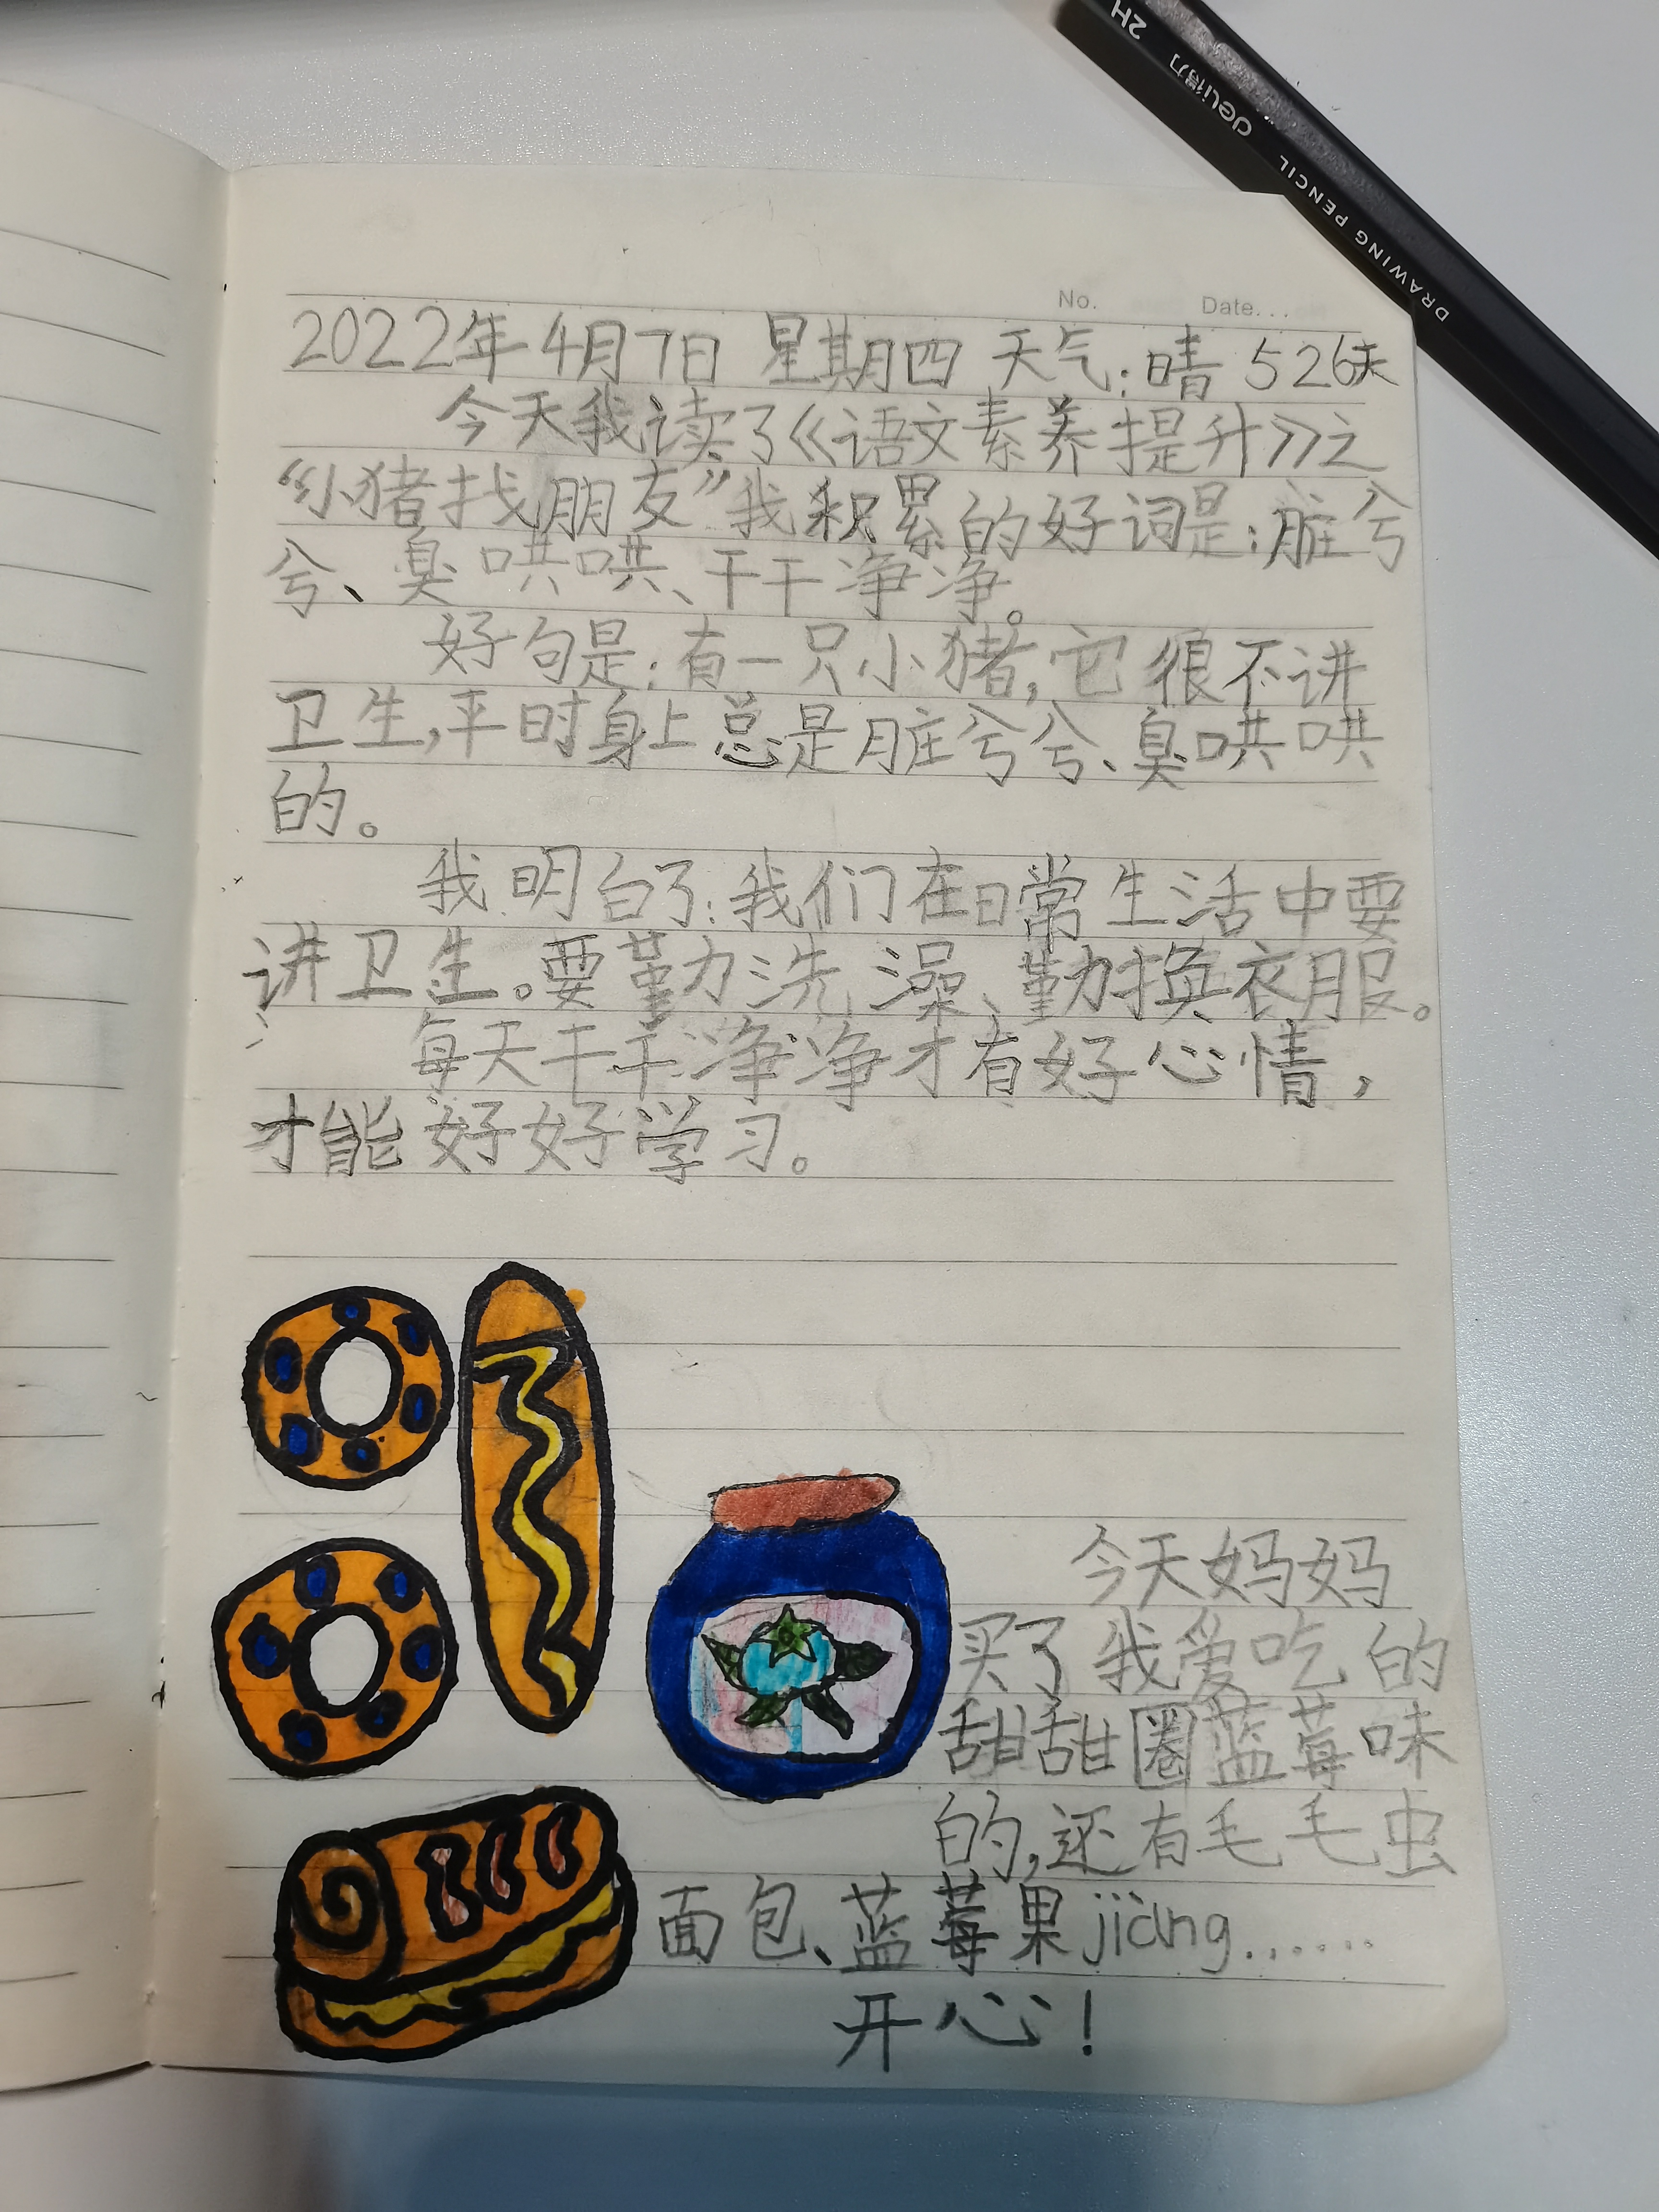 2H
deli得力
DRAWING PENCIL
No.
Date...
2022年4月7日 星期四 天气:晴 526天
今天我读了《语文素养提升》之
“小猪找朋友”我积累的好词是:脏兮
兮、臭哄哄、干干净净。
好句是:有一只小猪,它很不讲
卫生,平时身上总是脏兮兮、臭哄哄
的。
我明白了:我们在日常生活中要
讲卫生。要勤力洗澡、勤换衣服。
每天干干净净才有好心情,
才能好好学习。
今天妈妈
买了我爱吃的
甜甜圈蓝莓味
的,还有毛毛虫
面包、蓝莓果jiàng......
开心!